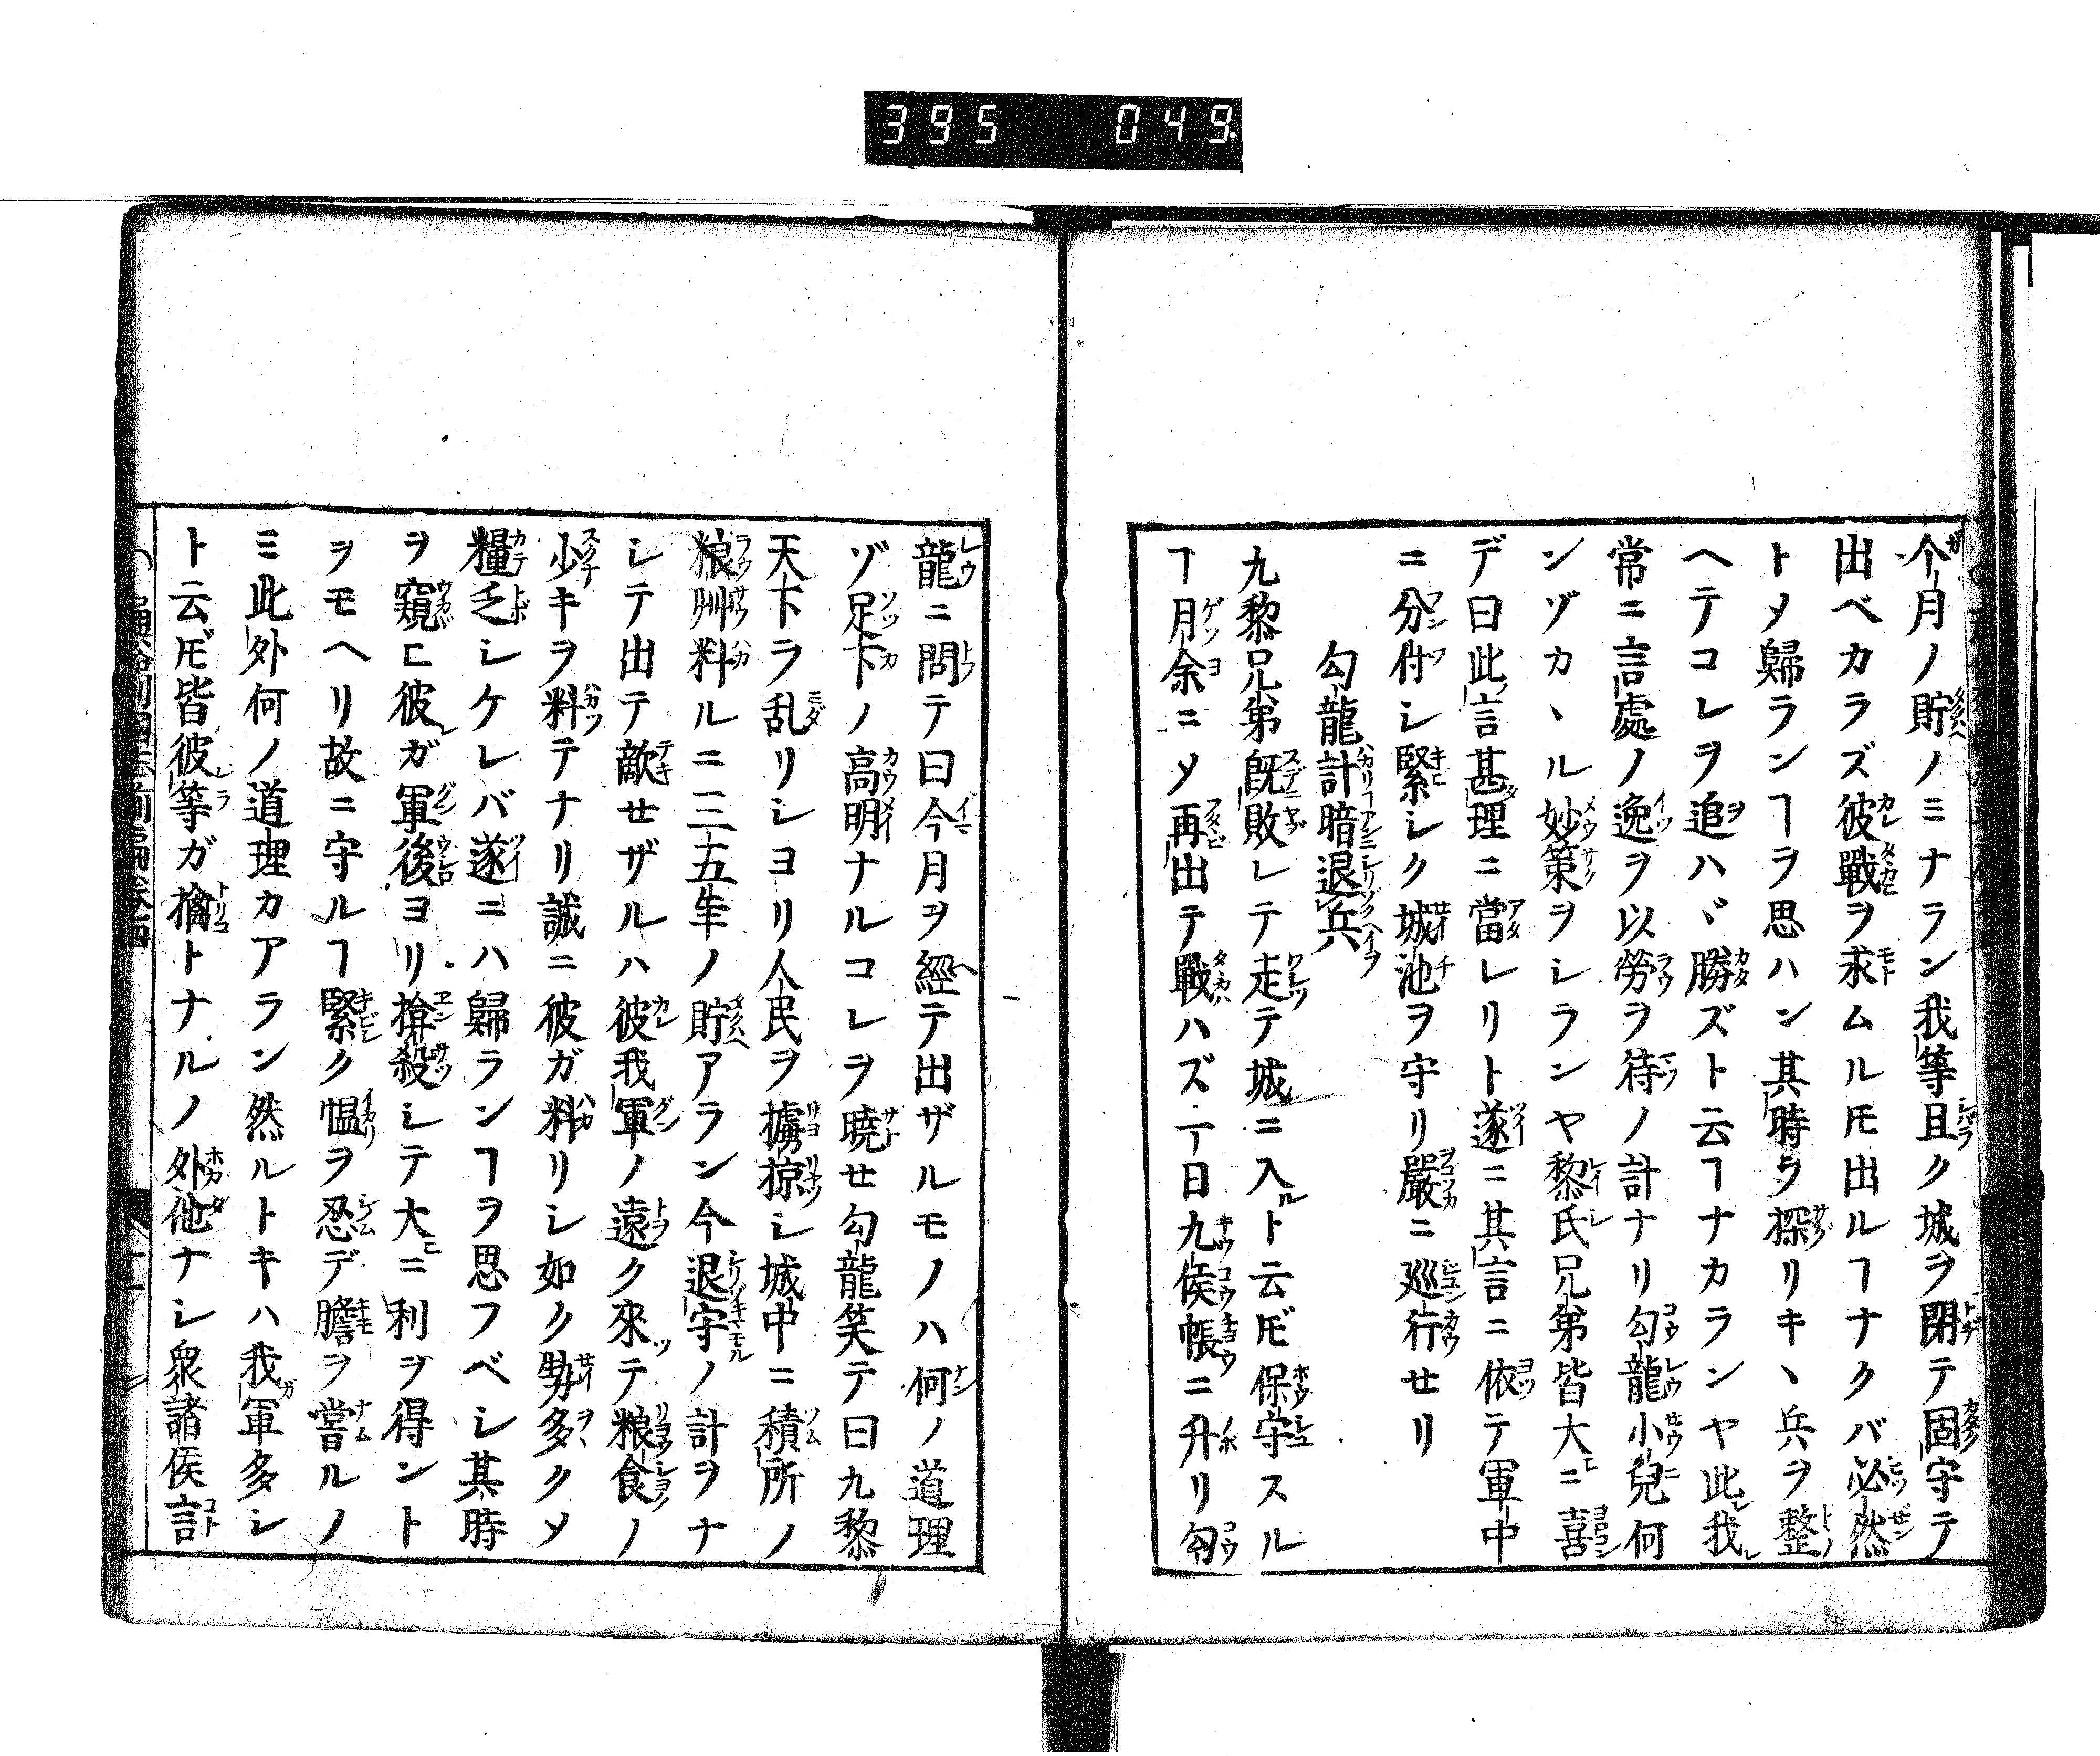 395 049
个月ノ貯ノミナラン我等且ク城ヲ閉テ固守テ
出ベカラズ彼戰ヲ求ムルモ出ルヿナクバ必然
トメ歸ランヿヲ思ハン其時探リキヽ兵ヲ整
ヘテコレヲ追ハヾ勝ズト云ヿナカランヤ此我
常ニ言處ノ逸ヲ以勞ヲ待ノ計ナリ勾龍小兒何
ンゾカヽル妙策ヲシランヤ黎氏兄弟皆大ニ喜
デ曰此言甚理ニ當レリト遂ニ其言ニ依テ軍中
ニ分付シ緊シク城池ヲ守リ嚴ニ廵行セリ
勾龍計暗退兵
九黎兄弟既敗レテ走テ城ニ入ト云𪜈保守スル
ヿ月余ニメ再出テ戰ハズ一日九侯帳ニ升リ勾
龍ニ問テ曰今月ヲ經テ出ザルモノハ何ノ道理
ゾ足下ノ高明ナルコレヲ曉セ勾龍笑テ曰九黎
天下ヲ乱リシヨリ人民ヲ擄掠シ城中ニ積所ノ
粮艸料ルニ三五年ノ貯アラン今退守ノ計ヲナ
シテ出テ敵セザルハ彼我軍ノ遠ク來テ粮食ノ
少キヲ料テナリ誠ニ彼ガ料リシ如ク勢多クメ
糧乏シケレバ遂ニハ歸ランヿヲ思フベシ其時
ヲ窺ヒ彼ガ軍後ヨリ掩殺シテ大ニ利ヲ得ント
ヲモヘリ故ニ守ルヿ緊ク愠ヲ忍デ膽ヲ嘗ルノ
ミ此外何ノ道理カアラン然ルトキハ我軍多シ
ト云𪜈皆彼等ガ擒トナルノ外他ナシ衆諸侯言